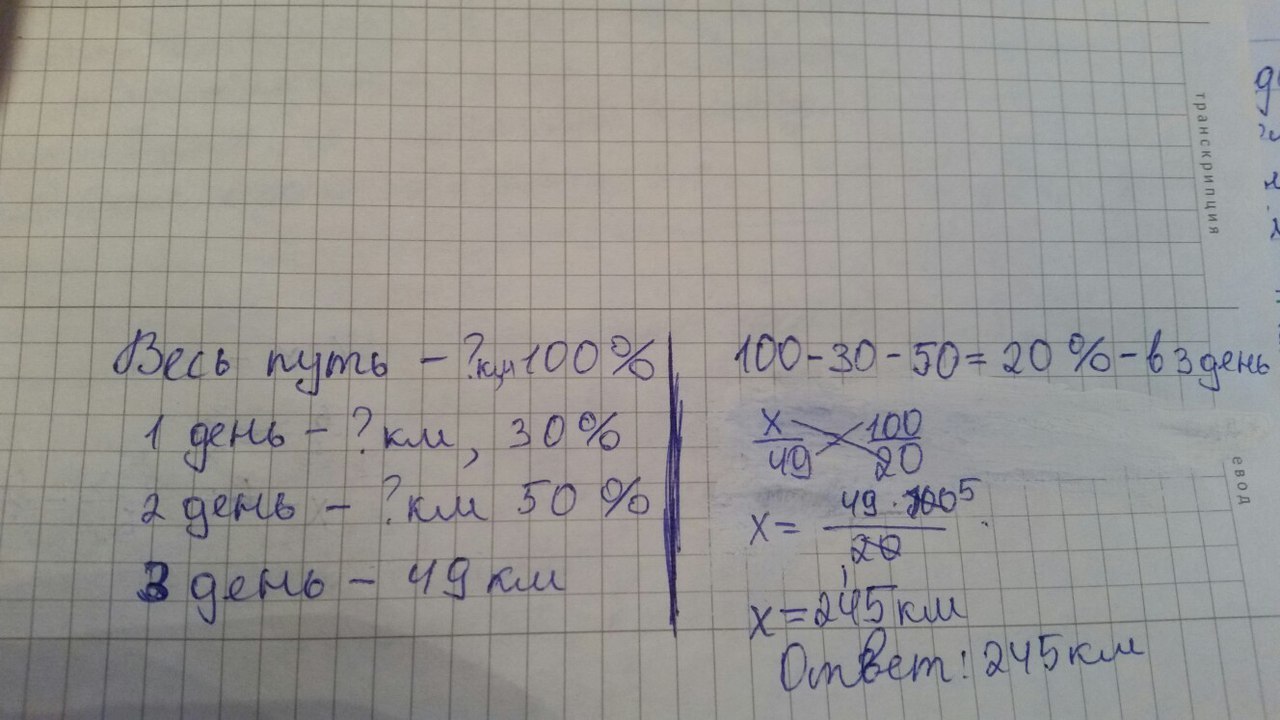 транскрипция
Весь путь – ?км 100%
1 день – ?км, 30%
2 день – ?км 50%
3 день – 49 км
100-30-50=20%-в 3 день
x/49 100/20
x= 49·100 5 / 20 1
x=245км
Ответ: 245км
евод